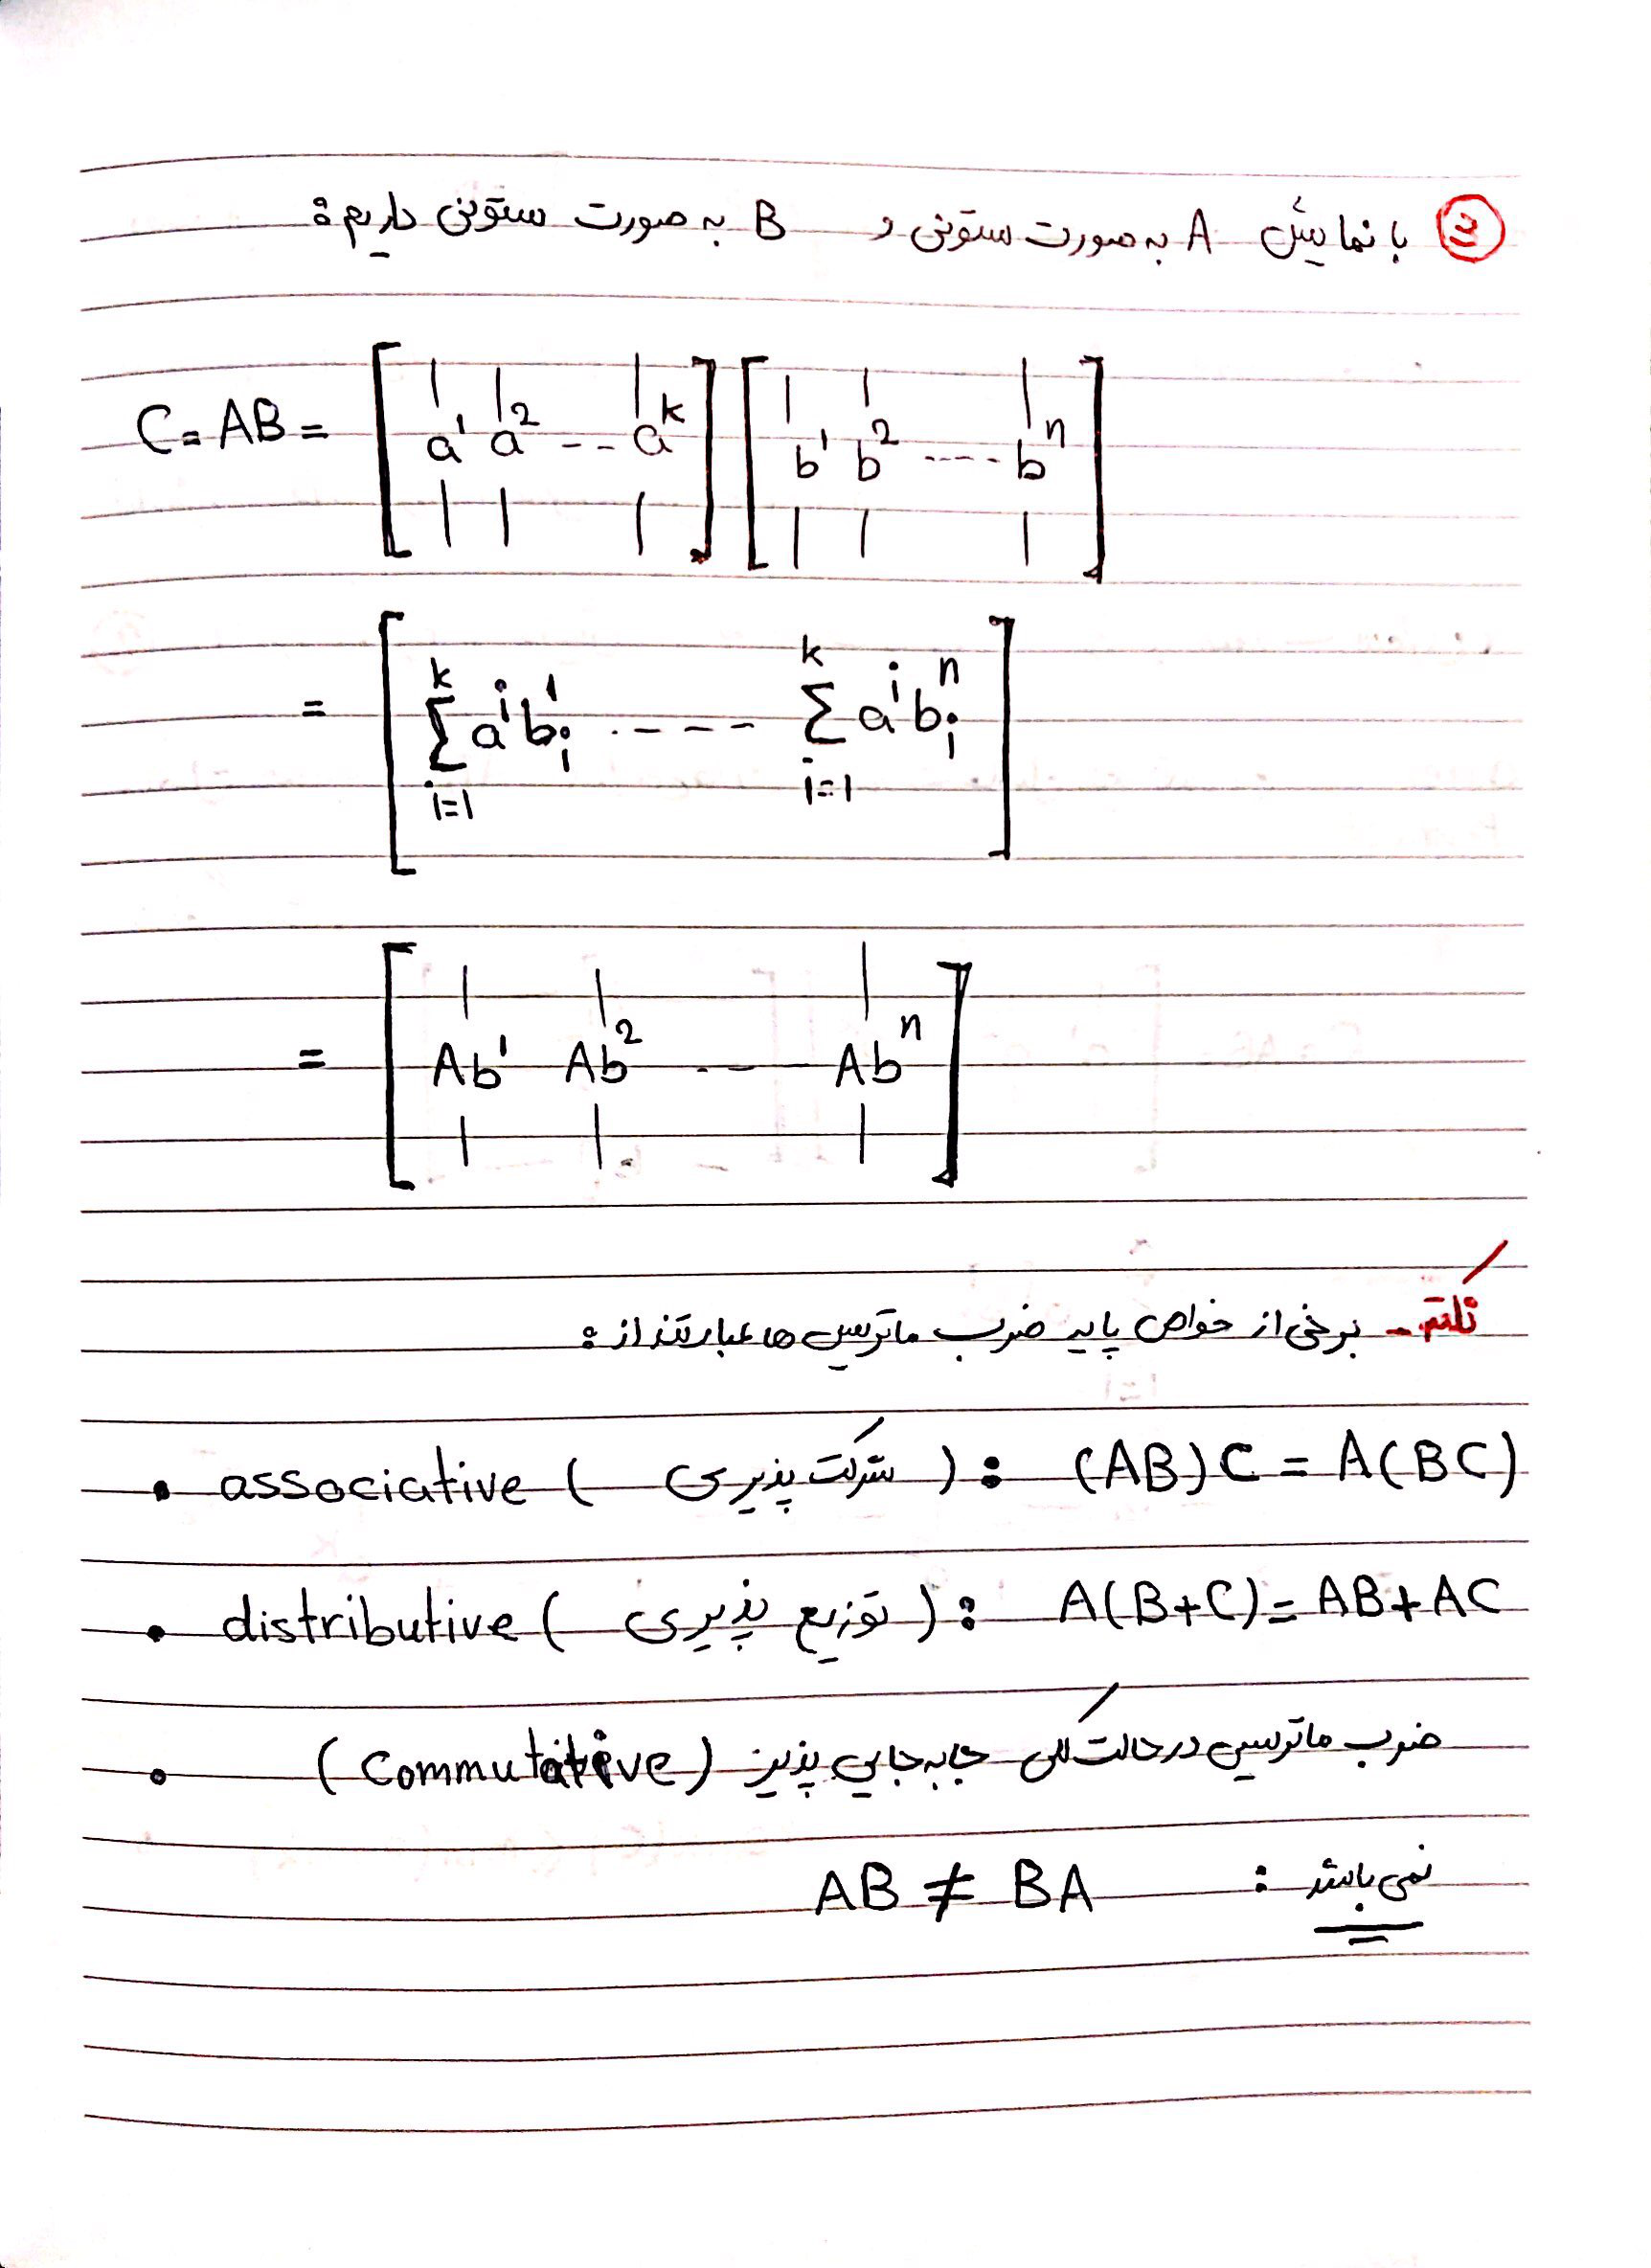 ③ با نمایش A به صورت ستونی و B به صورت ستونی داریم:
C = AB = [ a¹ a² -- aᵏ ] [ b¹ b² ---- bⁿ ]
= [ ∑ᵢ₌₁ᵏ aⁱbᵢ¹ ---- ∑ᵢ₌₁ᵏ aⁱbᵢⁿ ]
= [ Ab¹ Ab² -- Abⁿ ]
نکته - برخی از خواص پایه ضرب ماتریس ها عبارتند از:
• associative ( شرکت پذیری ) : (AB)C = A(BC)
• distributive ( توزیع پذیری ) : A(B+C) = AB + AC
• ضرب ماتریسی در حالت کلی جابه جایی پذیر (commutative)
نمی باشد : AB ≠ BA